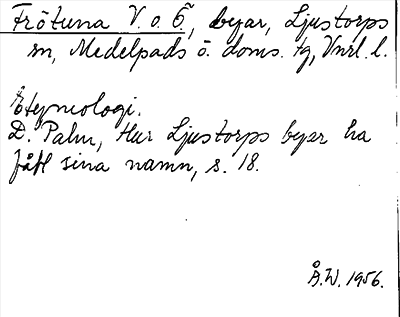 Frötuna V. o. Ö, byar, Ljustorps
sn, Medelpads ö. doms. tg, Vnrl. l.
Etymologi.
D. Palm, Hur Ljustorps byar ha
fått sina namn, s. 18.
Å.W. 1956.